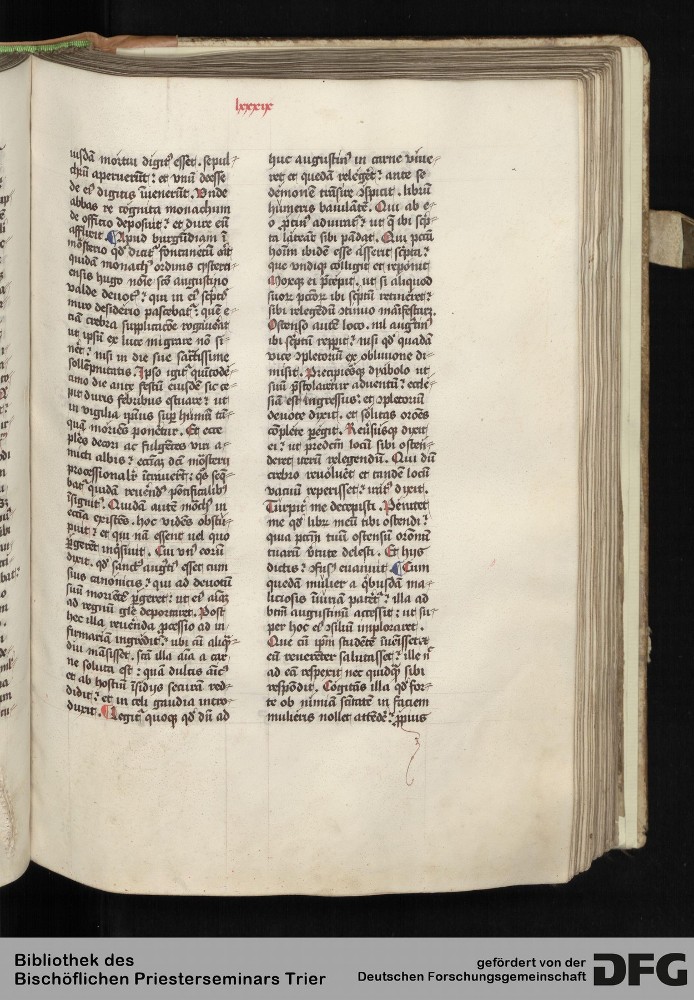 lxxxix
uisdā mortui digitꝰ esset . sepul⸗
chrū aperuerūt ? et unū deesse
de eiꝰ digitis īuenerūt . Vnde
abbas re cognita monachum
de officio deposuit ? et dure eū
afflixit . Apud burgūdiam ī
mōsterio qd̕ dicit͛ fontanetū erat
quidā monachꝰ ordinis cysterci
ensis hugo nōīe sc̄o augustino
valde deuotꝰ ? qui in eiꝰ sc̕ptꝭ
miro desiderio pascebat͛ ? quē e⸗
tiā crebra supplicac̄oe rogauerat
ut ipsū ex luce migrare nō si⸗
nēt ? nisi in die sue sacrissime
sollēpnitatis . Ipso igit͛ quītode⸗
cimo die ante festū eiusdē sic ce⸗
pit duris febribus estuare ? ut
in vigilia ip̄ius sup̱ humū tā⸗
quā moriēs ponēret͛ . Et ecce
ples decori ac fulgētes viri a⸗
micti albis ? ecc̄iaꝫ dc̄i mōsterii
processionalit̕ ītrauerūt ? q̄s seq̄⸗
bat͛ quidā reuerēdꝰ pōtificalibꝰ
īsignitꝰ . Quidā autē mōchꝰ in
ecc̄ia existēs . hoc vidēs obstu⸗
puit ? et qui nā essent uel quo
ꝑgerēt inq̄siuit . Cui vnꝰ eorū
dixit . qd̕ sanctꝰ augꝰtī esset cum
suis canonicis ? qui ad deuotū
suū moriētē ꝑgeret ? ut eiꝰ aīaꝫ
ad regnū gl̄e deportaret . Post
hec illa reuerēda ꝓcessio ad in⸗
firmariā ingredit͛ ? ubi cū aliq̄⸗
diu māsisset . sc̄a illa aīa a car⸗
ne soluta est ? quā dulcis āicꝰ
et ab hostiū īsidys securā red⸗
didit ? et in celi gaudia intro⸗
duxit . Legit͛ quoqꝫ qd̕ dū ad
huc augustinꝰ in carne viue⸗
ret et quedā relegēt ? ante se
demonē trāsire ꝯspicit . librū
humeris baiulātē . Qui ab e⸗
o ꝓtinꝰ adiurauit ? ut q̄ ibi sc̕p
ta lateāt sibi pādat . Qui pcc̄tā
hoīm ibidē esse asserit sc̕pta ?
que vndiqꝫ colligit et reponit
Moxqꝫ ei p̄cepit . ut si aliquod
suoꝝ pcc̄oꝝ ibi sc̕ptū retineret ?
sibi relegēdū ꝯtinuo māifestaꝫ .
Ostenso autē loco . nil augꝰtinꝰ
ibi sc̕ptū reppit ? nisi qd̕ quadā
vice ꝯpletoriū ex obliuione di⸗
misit . Precipiēsqꝫ dyabolo ut
suū p̄stolaretur aduentū ? eccle⸗
siā est ingressus ? et ꝯpletoriū
deuote dixit . et solitas orōes
cōplete ꝑegit . Reūsusqꝫ dixit
ei ? ut predc̄m locū sibi osten⸗
deret iterū relegendū . Qui dū
crebro reuolueret et tandē locū
vacuū reperisset ? iratꝰ dixit .
Turpit̕ me decepisti . Penitet
me qd̕ librū meū tibi ostendi ?
quia pcc̄m tuū ostensū orōnū
tuarū v̕tute delesti . Et hys
dictis ? ꝯfusꝰ euanuit Cum
quedā mulier a q̇busdā ma⸗
liciosis iniuriā pateret͛ ? illa ad
bt̄m augustinū accessit ? ut su⸗
per hoc eiꝰ ꝯsiliū imploraret .
Que cū ip̄m studētē īuēisset et
eū reuerēter salutasset ? ille nͨ
ad eā respexit nec quidqꝫ sibi
respōdit . Cogitās illa qd̕ for⸗
te ob nimiā sc̄itatē in faciem
mulieris nollet attēdē ? ꝓpius
Bibliothek des
Bischöflichen Priesterseminars Trier
gefördert von der
Deutschen Forschungsgemeinschaft
DFG